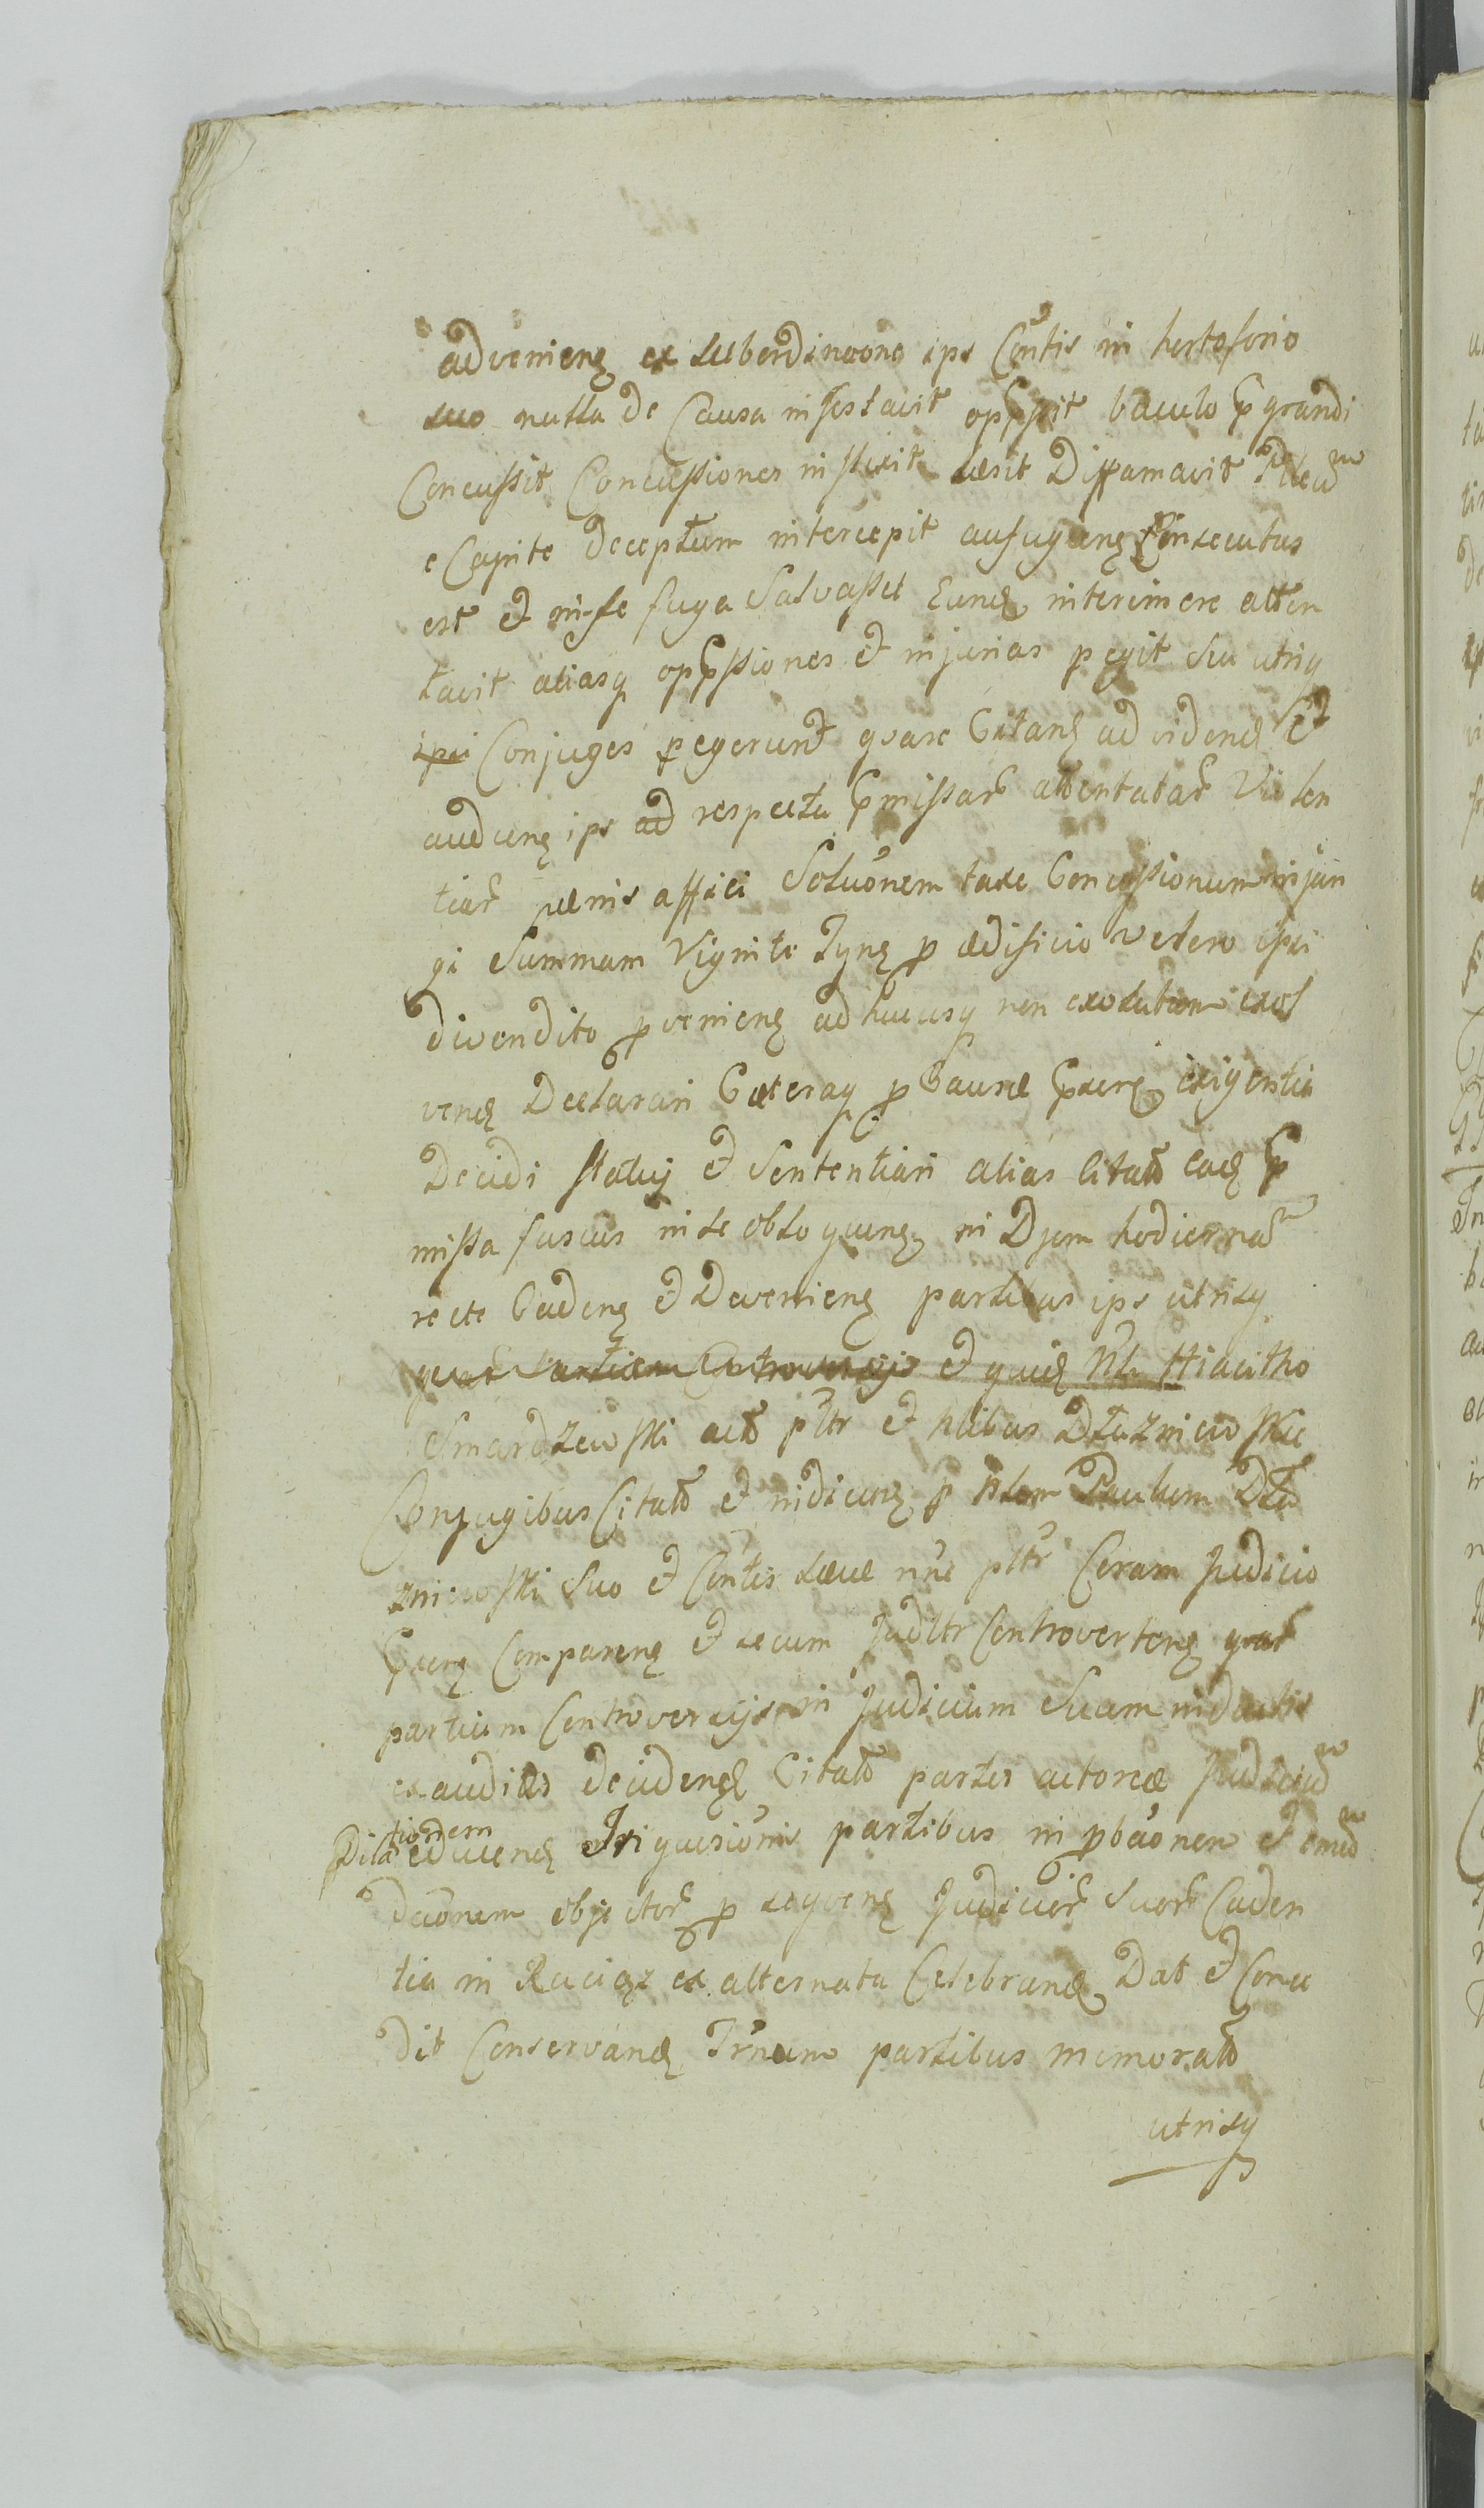 advenienɋ ex suberdinaone ips Contis in hortoforio
suo nulla de Causa infestavit oppssit baculo pgrandi
Concussit Concussiones inflixit Læsit Diffamavit Pileum
e Capite deceptum intercepit aufugienɋ Consecutus
est et ni se fuga Salvasset Eund interimere atten
tavit aliasq oppssiones et injurias pegit seu utriq
ipsi Conjuges pegerunt qvare Citand ad vidend Et
audienɋ ips ad respectu pmissar attentatar Violen
tiar pænis affici Soluonem taxe Concussionum injun
gi Summam Viginti Tynɋ p ædificio vetero ipsi
divendito pvenienɋ adhucusq non exolutam exol
vend Declarari Cæteraq p Causæ pxentis exigentia
Decidi statuj et Sententiari alias Citato eadɋ p
missa fusius in se obloquenɋ in Djem hodiernam
recte Cadenɋ et Devenienɋ partibus ips utrisq
quar Partium Controversijs et quid Nli Hiacitho
Smardzewski acto pltr et Nlibus Dłuzniewskie
Conjugibus Citato et indicenɋ p Nlem Paulum Dłu
zniewski suo et Contis suæ nne pltr Coram Judicio
pxenɋ Comparenɋ et secum Judltr Controvertenɋ qvar
partium Controversijs in Judicium Suum inductis
exauditis decidend Citato partis actoreæ Judicium
Dilationem educend Inquisionis partibus in pbaonem et emun
daonem objector p seqvenɋ Judicior suor Caden
tia in Raciąz ex alternata Celebrand Dat et Conce
dit Conservand Trnum partibus memorato
utrisq